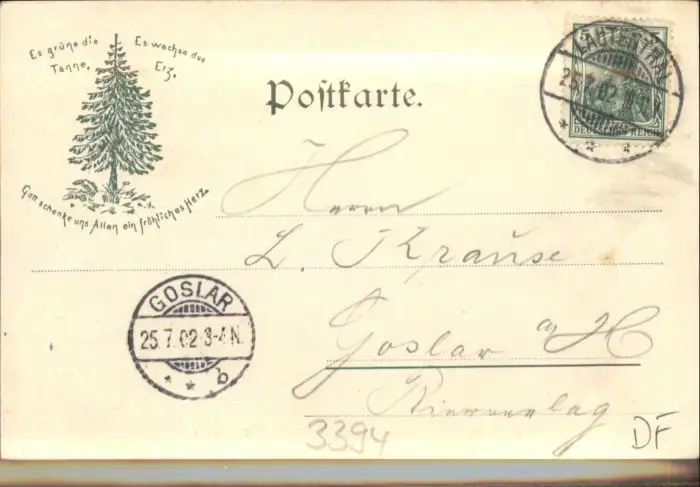 Es grüne die Tanne,
Es wachse das Erz,
Gott schenke uns Allen ein fröhliches Herz.
Postkarte.
LAUTENTHAL
25.7.02
DEUTSCHES REICH
Herrn
L. Krause
Goslar a/H
GOSLAR
25.7.02 3-4 N.
* * b
3394
DF